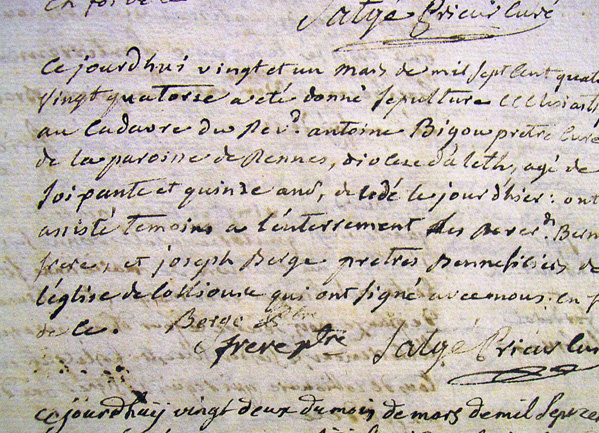 En foi de ce
Salgé Prieur Curé
Ce jourdhui vingt et un mars de mil sept Cent quat
vingt quatorse a eté donné sepulture Ecclesiast
au Cadavre du Revd. antoine Bigou pretre Curé
de la paroisse de Rennes, diocese d'aleth, agé de
soixante et quinze ans, decedé le jour d'hier : ont
assisté temoins a l'enterrement les Rever.d Bern
frere, et joseph Berge pretres Benneficiers de
l'église de Collioure qui ont signé avec nous en f
de ce. Berge ptre
frere ptre Salgé Prieur Cur
ce jourdhuy vingt deux du mois de mars de mil sept ce